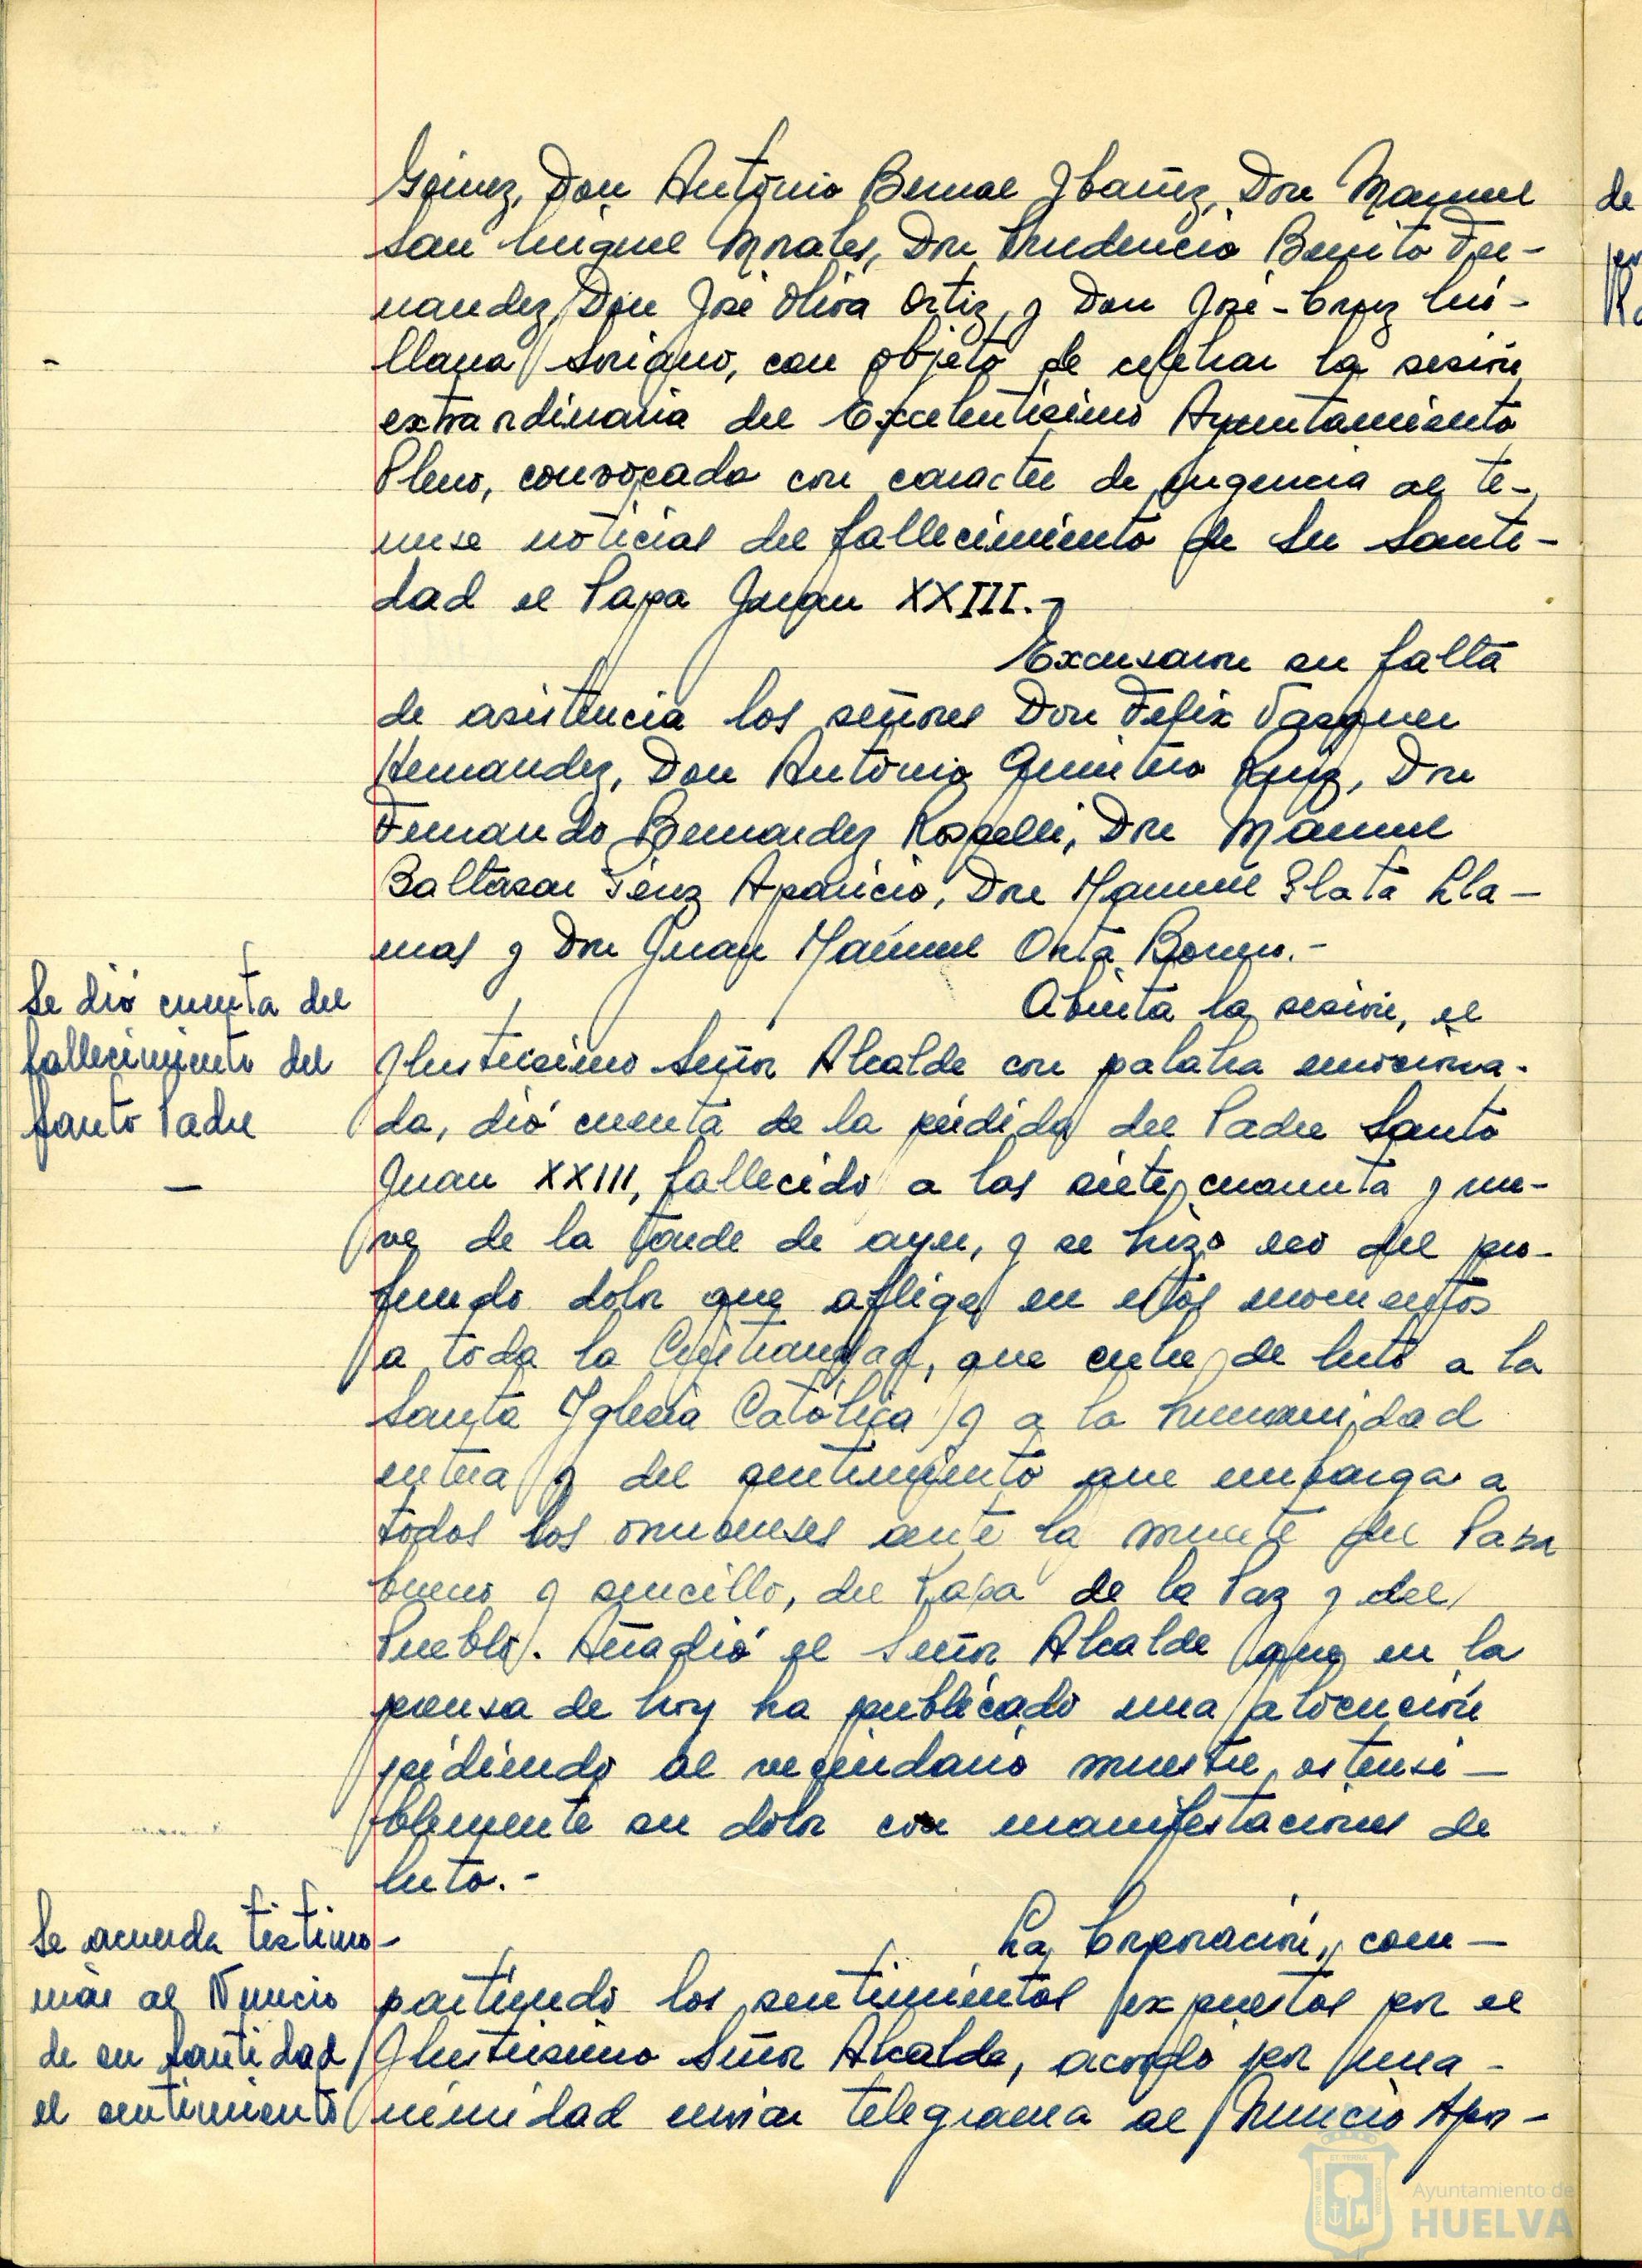 Gómez, Don Antonio Bernal Ybañez, Don Manuel
San Miguel Morales, Don Prudencio Benito Fer-
nandez, Don José Oliva Ortiz, y Don José-Cruz Mi-
llana Soriano, con objeto de celebrar la sesión
extraordinaria del Excelentísimo Ayuntamiento
Pleno, convocada con caracter de urgencia al te-
nerse noticias del fallecimiento de Su Santi-
dad el Papa Juan XXIII.-
Excusaron su falta
de asistencia los señores Don Felix Vazquez
Hernandez, Don Antonio Quintero Ruiz, Don
Fernando Bermudez Rospelli, Don Manuel
Baltasar Pérez Aparicio, Don Manuel Plata Lla-
mas y Don Juan Manuel Orta Borrero.-
Se dió cuenta del
fallecimiento del
Santo Padre
—
Abierta la sesión, el
Ylustrisimo Señor Alcalde con palabra emociona-
da, dió cuenta de la pérdida del Padre Santo
Juan XXIII, fallecido a las siete, cuarenta y nue-
ve de la tarde de ayer, y se hizo eco del pro-
fundo dolor que aflige en estos momentos
a toda la Cristiandad, que cubre de luto a la
Santa Yglesia Católica y a la humanidad
entera y del sentimiento que embarga a
todos los onubenses ante la muerte del Papa
bueno y sencillo, del Papa de la Paz y del
Pueblo. Añadió el Señor Alcalde que en la
prensa de hoy ha publicado una alocución
pidiendo al vecindario muestre ostensi-
blemente su dolor con manifestaciones de
luto.-
Se acuerda testimo-
niar al Nuncio
de su Santidad
el sentimiento
La Corporación, com-
partiendo los sentimientos expuestos por el
Ylustrisimo Señor Alcalde, acordó por una-
nimidad enviar telegrama al Nuncio Apos-
de
Ayuntamiento de
HUELVA